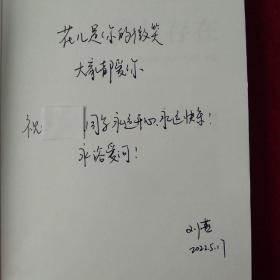 花儿是你的微笑
大家都爱你
祝 同学永远开心、永远快乐！
永浴爱河！
2022.5.17